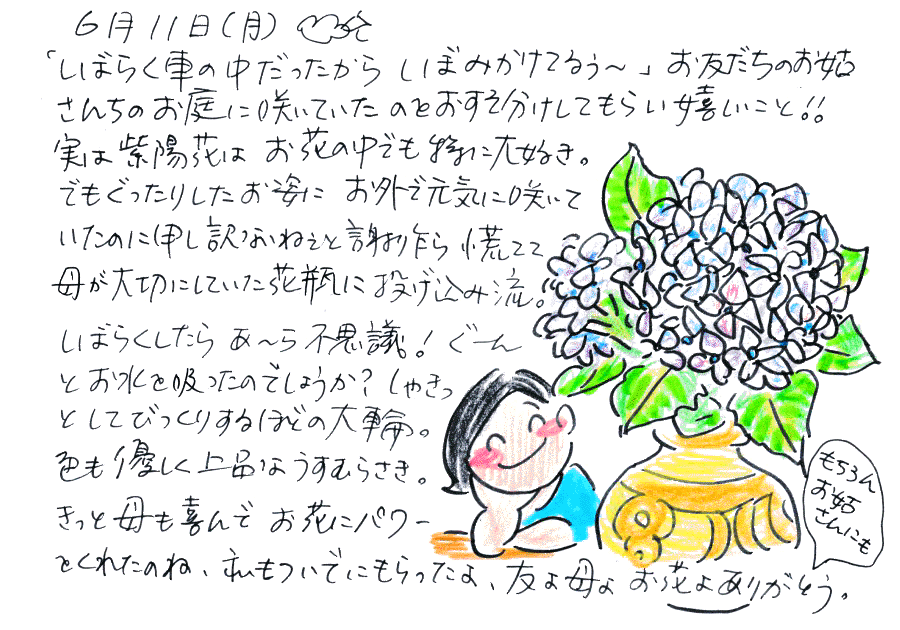 6月11日(月)
「しばらく車の中だったから しぼみかけてるぅ～」お友だちのお姑
さんちのお庭に咲いていたのをおすそ分けしてもらい嬉しいこと!!
実は紫陽花は お花の中でも特に大好き。
でもぐったりしたお姿に お外で元気に咲いて
いたのに申し訳ないねぇと謝り乍ら 慌てて
母が大切にしていた花瓶に投げ込み流。
しばらくしたら あ～ら不思議! ぐーん
とお水を吸ったのでしょうか? しゃきっ
としてびっくりするほどの大輪。
色も優しく上品なうすむらさき。
きっと母も喜んで お花にパワー
をくれたのね、私もついでにもらったよ、友よ母よ お花よありがとう。
もちろん
お姑
さんにも